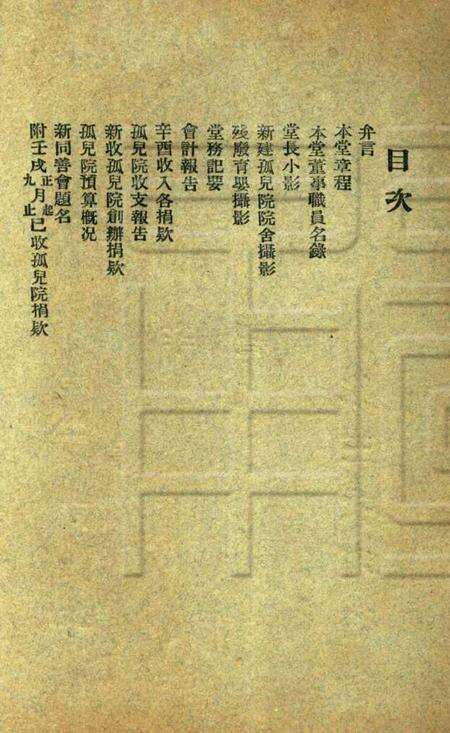 目次
弁言
本堂章程
本堂董事職員名錄
堂長小影
新建孤兒院院舍攝影
殘廢育嬰攝影
堂務記要
會計報告
辛酉收入各捐欵
孤兒院收支報告
新收孤兒院創辦捐欵
孤兒院預算概况
新同善會題名
附壬戌正起九止月已收孤兒院捐欵